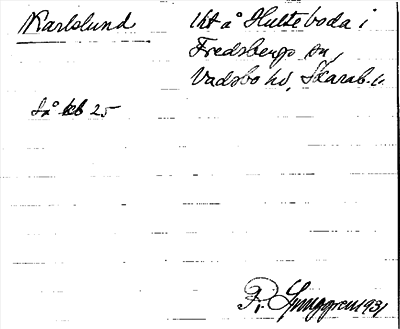 Karlslund
Utå Hulteboda i
Fredsbergs sn,
Vadsbo hd, Skarab. l.
Så kb 25
R. Ljunggren 1931